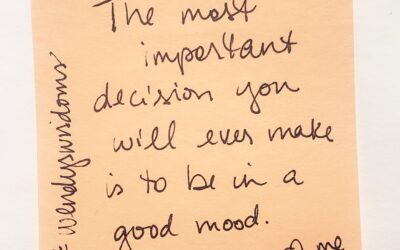 The most
important
decision you
will ever make
is to be in a
good mood.
me
wendyswisdoms